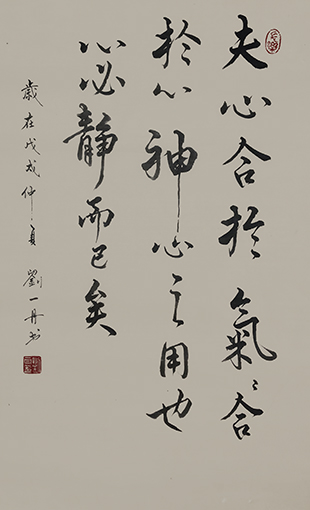 夫心合於氣氣合
於心神心之用也
心必靜而已矣
歲在戊戌仲夏 劉一丹书